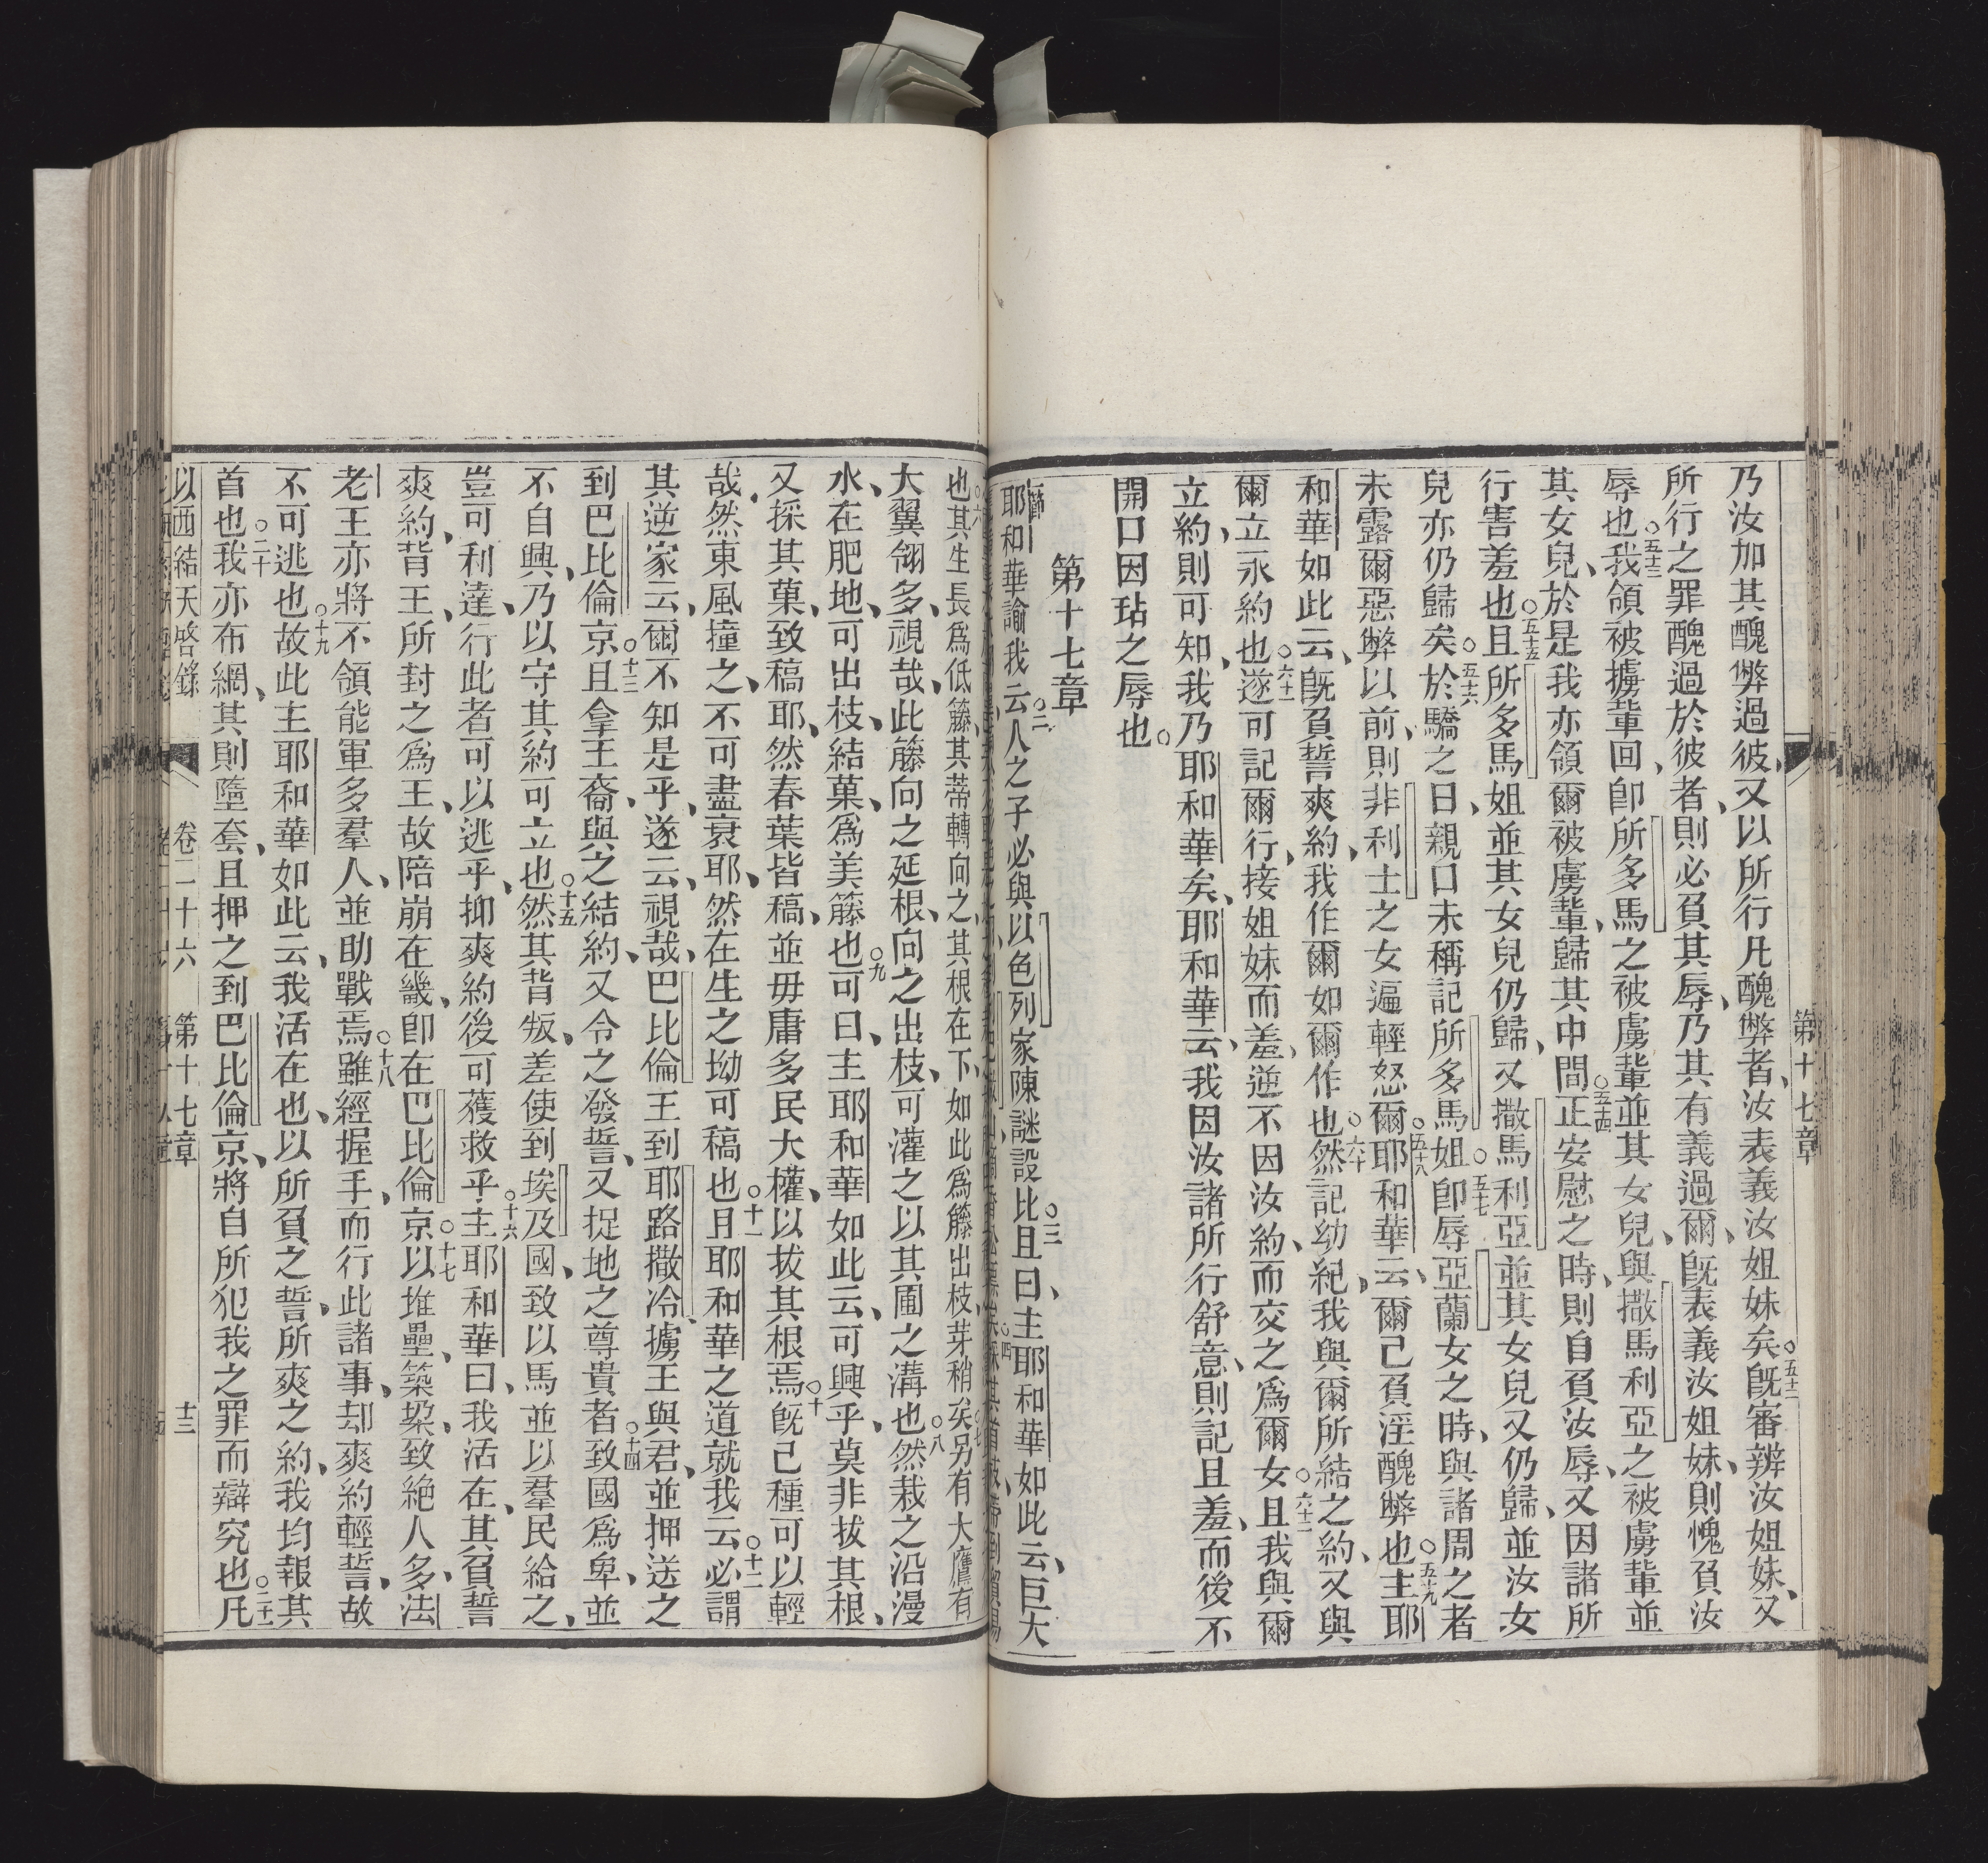 第十七章
乃汝加其醜弊過彼、又以所行凡醜弊者、汝表義汝姐妹矣○五十二既審辨汝姐妹、又
所行之罪醜過於彼者、則必負其辱、乃其有義過爾、既表義汝姐妹、則愧負汝
辱也○五十三我領被擄輩回、卽所多馬之被虜輩並其女兒、與撒馬利亞之被虜輩並
其女兒、於是我亦領爾被虜輩、歸其中間○五十四正安慰之時、則自負汝辱、又因諸所
行害羞也○五十五且所多馬姐並其女兒仍歸、又撒馬利亞並其女兒又仍歸、並汝女
兒亦仍歸矣○五十六於驕之日、親口未稱記所多馬姐○五十七卽辱亞蘭女之時、與諸周之者
未露爾惡弊以前、則非利士之女逼輕怒爾○五十八耶和華云、爾己負淫醜弊也○五十九主耶
和華如此云、既負誓爽約、我作爾如爾作也○六十然記幼紀、我與爾所結之約、又與
爾立永約也○六十一遂可記爾行、接姐妹而羞、逆不因汝約、而交之爲爾女○六十二且我與爾
立約、則可知、我乃耶和華矣、耶和華云、我因汝諸所行舒意、則記且羞、而後不
開口因玷之辱也○
第十七章
一節耶和華諭我云○二人之子必與以色列家陳謎設比○三且曰、主耶和華如此云、巨大
也○六其生長爲低籐、其蒂轉向之、其根在下、如此爲籐出枝、芽稍矣○七另有大鷹有
大翼翎多、視哉、此籐向之延根、向之出枝、可灌之以其圃之溝也○八然栽之沿漫
水、在肥地、可出枝、結菓、爲美籐也○九可曰、主耶和華如此云、可興乎、莫非拔其根、
又採其菓、致稿耶、然春葉皆稿、並毋庸多民大權、以拔其根焉○十既己種可以輕
哉、然東風撞之、不可盡衰耶、然在生之坳可稿也○十一且耶和華之道就我云○十二必謂
其逆家云、爾不知是乎、遂云、視哉、巴比倫王到耶路撒冷、擄王與君、並押送之
到巴比倫京○十三且拿王裔、與之結約、又令之發誓、又捉地之尊貴者○十四致國爲卑、並
不自興、乃以守其約可立也○十五然其背叛、差使到埃及國、致以馬並以羣民給之、
豈可利達、行此者可以逃乎、抑爽約後可蒦救乎○十六主耶和華曰、我活在、其負誓
爽約、背王、所封之爲王、故陪崩在畿、卽在巴比倫京○十七以堆壘、築梁、致絕人多、法
老王亦將不領能軍多羣人、並助戰焉○十八雖經握手、而行此諸事、却爽約輕誓、故
不可逃也○十九故此主耶和華如此云、我活在也、以所負之誓、所爽之約、我均報其
首也○二十我亦布網、其則墮套、且押之到巴比倫京、將自所犯我之罪而辯究也○二十一凡
以西結天啓錄 卷二十六 第十七章 十三